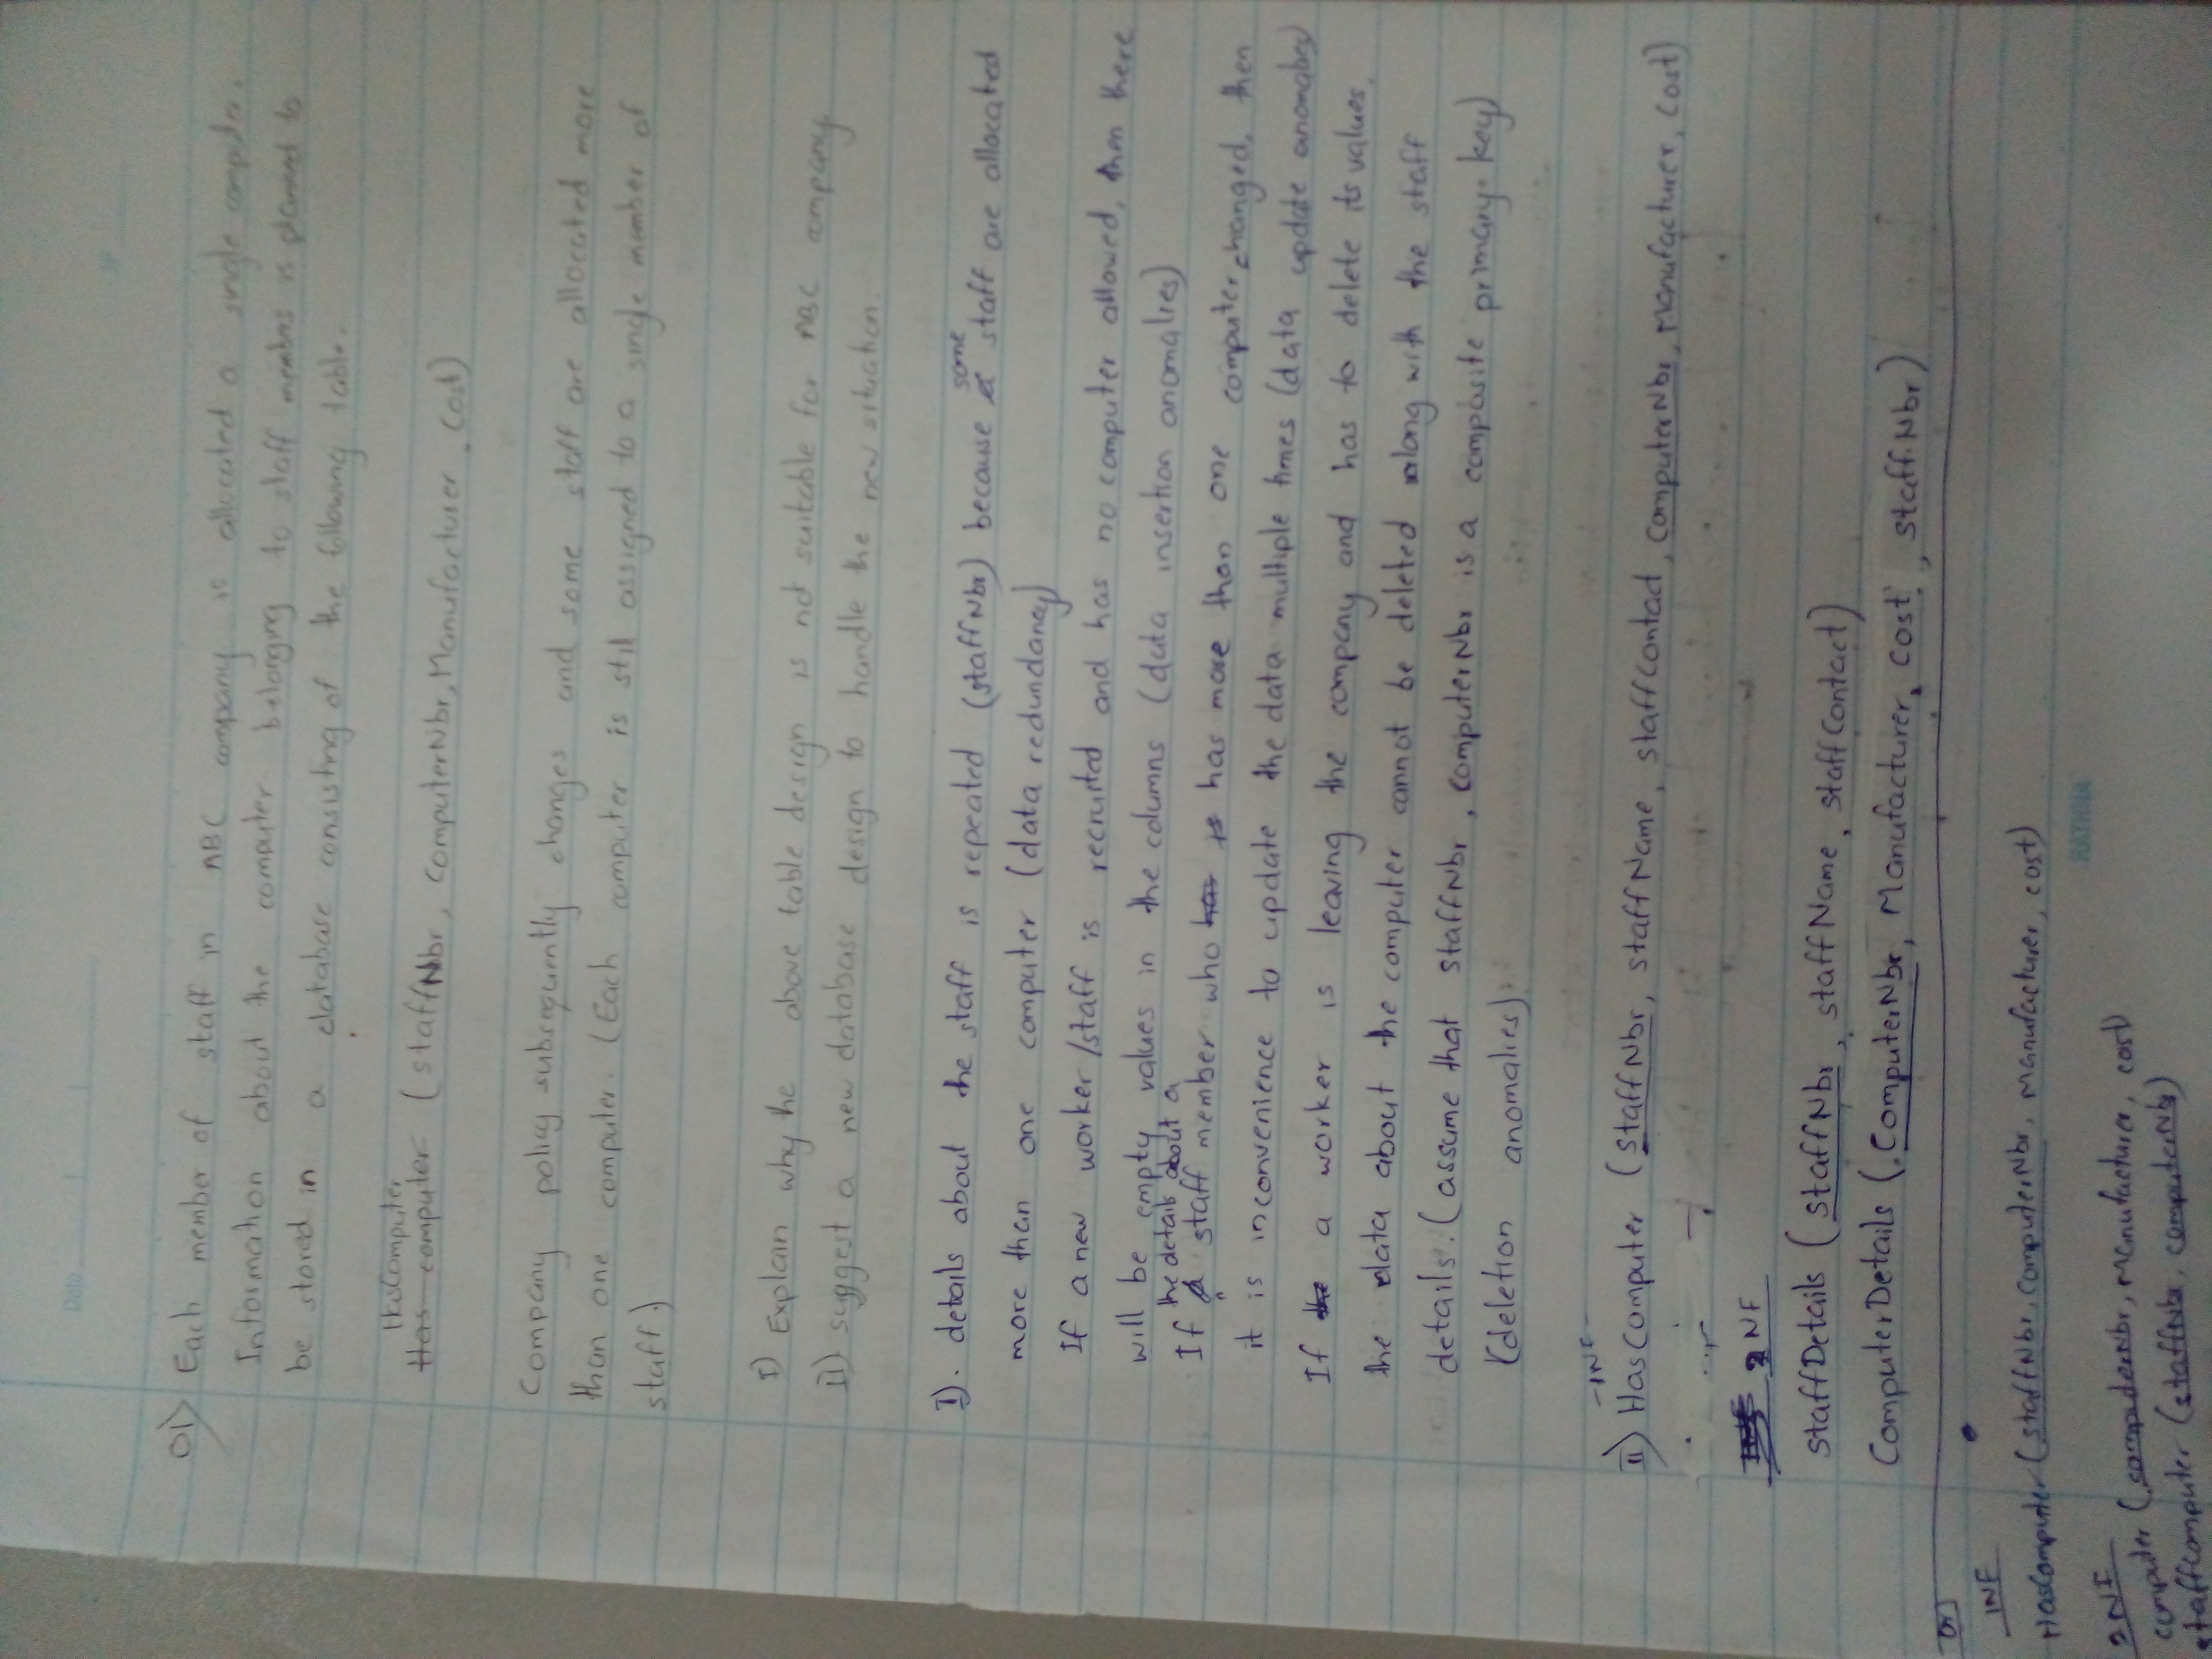 Date
01) Each member of staff in ABC company is allocated a single computer.
Information about the computer belonging to staff members is planned to
be stored in a database consisting of the following table.
HasComputer
Has computer (staffNbr, computerNbr, Manufacturer, cost)
Company policy subsequently changes and some staff are allocated more
than one computer. (Each computer is still assigned to a single member of
staff.)
I) Explain why the above table design is not suitable for ABC company
II) suggest a new database design to handle the new situation.
I). details about the staff is repeated (staffNbr) because some staff are allocated
more than one computer (data redundancy)
If a new worker/staff is recruited and has no computer allowed, then there
will be empty values in the columns (data insertion anomalies)
the details about a
If staff member who has more than one computer changed, then
it is inconvenience to update the data multiple times (data update anomalies)
If a worker is leaving the company and has to delete its values,
the data about the computer cannot be deleted along with the staff
details. (assume that staffNbr, computerNbr is a composite primary key)
(deletion anomalies)
-1NF-
II) HasComputer (staffNbr, staffName, staffContact, ComputerNbr, Manufacturer, cost)
2NF
StaffDetails (StaffNbr, staffName, staffContact)
ComputerDetails (ComputerNbr, Manufacturer, Cost, staffNbr)
Or
1NF
HasComputer (staffNbr, computerNbr, manufacturer, cost)
2NF
computer (computerNbr, manufacturer, cost)
staffcomputer (staffNbr, computerNbr)
RATHNA